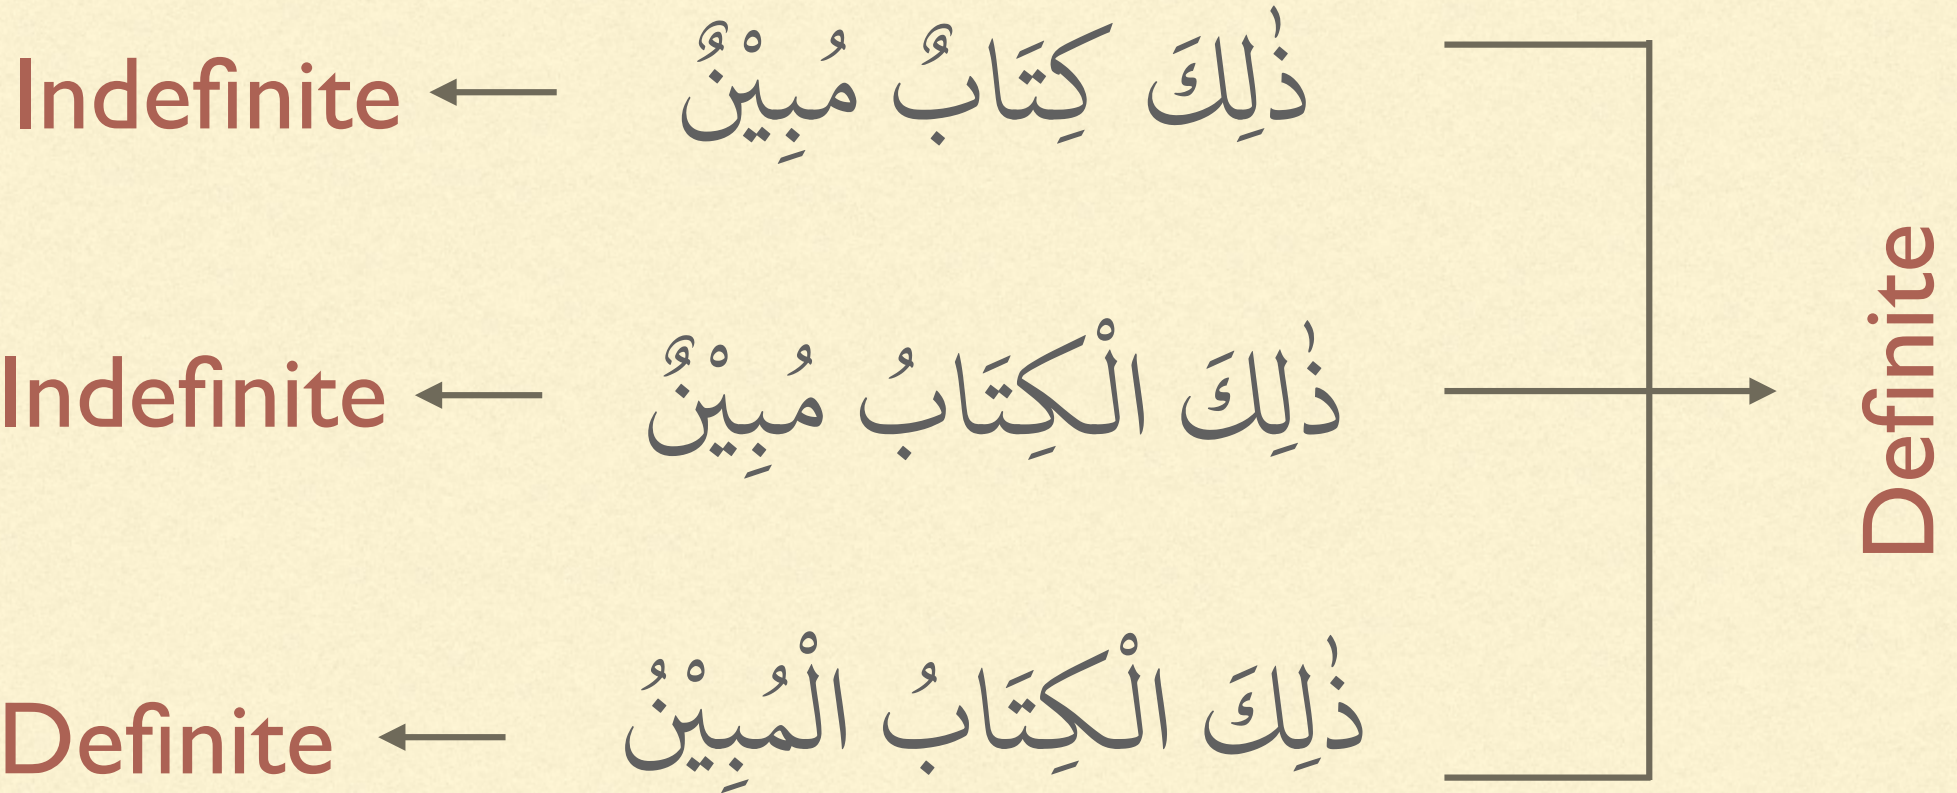 Indefinite ذٰلِكَ كِتَابٌ مُبِيْنٌ
Indefinite ذٰلِكَ الْكِتَابُ مُبِيْنٌ
Definite ذٰلِكَ الْكِتَابُ الْمُبِيْنُ
Definite